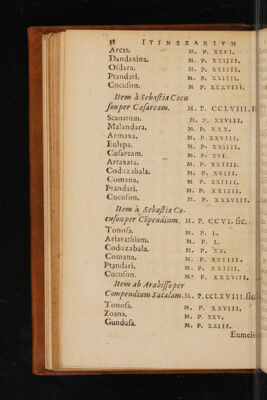 38 ITINERARIVM
Arcas. M. P. XXVI.
Dandaxina. M. P. XXIIII.
Osdara. M. P. XXIIII.
Ptandari. M. P. XXIIII.
Cocuson. M. P. XXXVIII.
Item à Sebastia Cocu
son per Cæsaream. M. P. CCLVIII.
Scanatum. M. P. XXVIII.
Malandara. M. P. XXX.
Armaxa. M. P. XXVIII.
Eulepa. M. P. XXIIII.
Cæsaream. M. P. XVI.
Artaxata. M. P. XXIIII.
Coduzabala. M. P. XVIII.
Comana. M. P. XXIIII.
Ptandari. M. P. XXIIII.
Cocuson. M. P. XXXVIII.
Item à Sebastia Co-
cuson per Cōpendium. M. P. CCVI. sic.
Tonosa. M. P. L.
Ariarathiam. M. P. L.
Coduzabala. M. P. XX.
Comana. M. P. XXIIII.
Ptandari. M. P. XXIIII.
Cocuson. M. P. XXXVIII.
Item ab Arabisso per
Compendium Satalam. M. P. CCLXVIII. sic.
Tonosa. M. P. XXVIII.
Zoana. M. P. XXV.
Gundusa. M. P. XXIII.
Eumeis